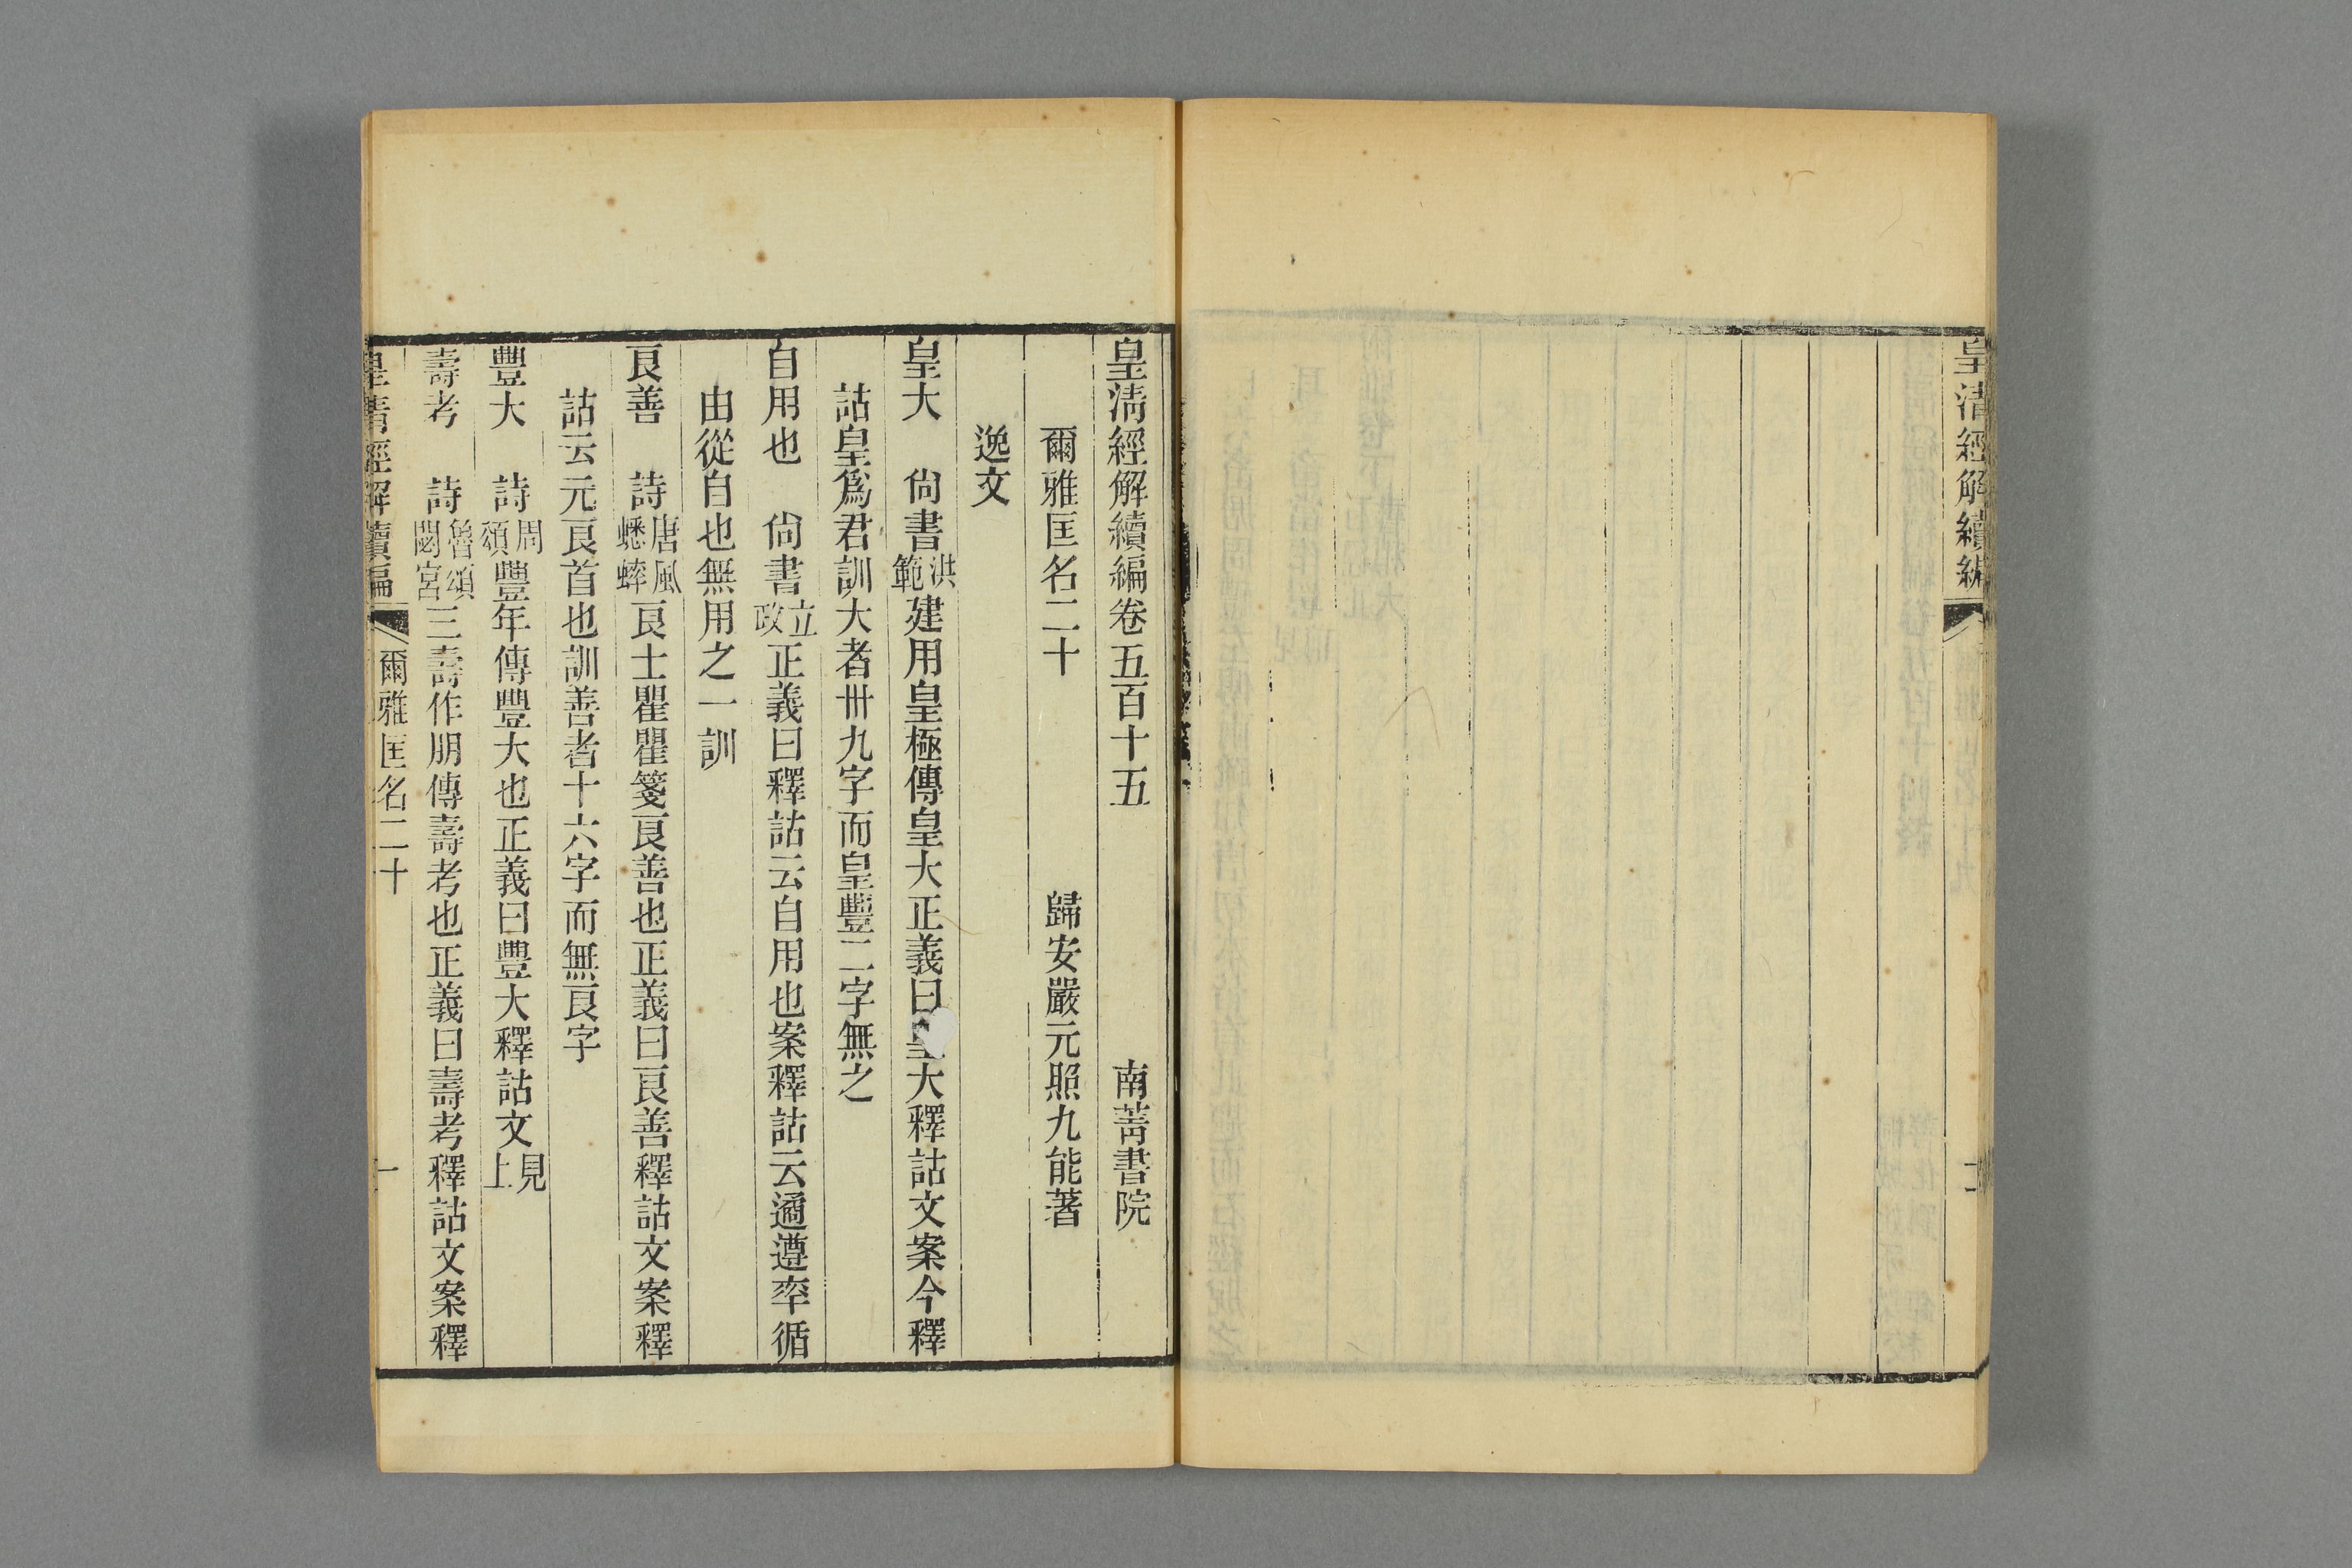 皇清經解續編
皇清經解續編卷五百十五 南菁書院
爾雅匡名二十 歸安嚴元照九能著
逸文
皇大 尙書洪範建用皇極傳皇大正義曰皇大釋詁文案今釋
詁皇爲君訓大者卅九字而皇豐二字無之
自用也 尙書立政正義曰釋詁云自用也案釋詁云遹遵率循
由從自也無用之一訓
良善 詩唐風蟋蟀良士瞿瞿箋良善也正義曰良善釋詁文案釋
詁云元良首也訓善者十六字而無良字
豐大 詩周頌豐年傳豐大也正義曰豐大釋詁文見上
壽考 詩魯頌閟宮三壽作朋傳壽考也正義曰壽考釋詁文案釋
皇清經解續編 爾雅匡名二十 一